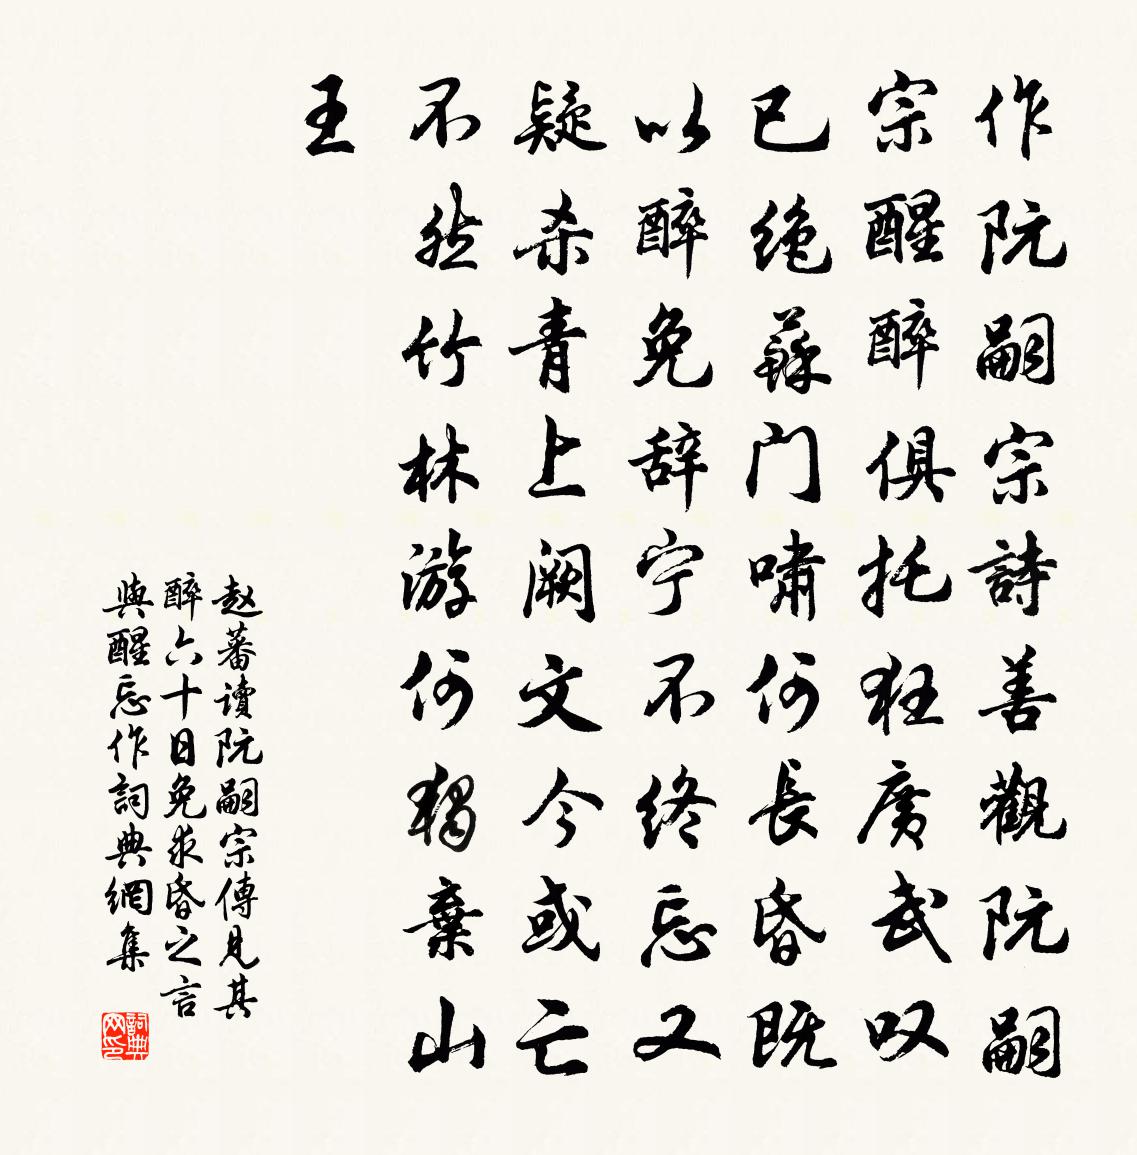 作阮嗣宗詩善觀阮嗣
宗醒醉俱托狂廣武叹
已绝蘇门嘯何長昏既
以醉免辞宁不终忘又
疑杀青上阙文今或亡
不然竹林游何獨棄山
王
赵蕃讀阮嗣宗傳見其
醉六十日免求昏之言
與醒忘作詞典網集
詞典
网印